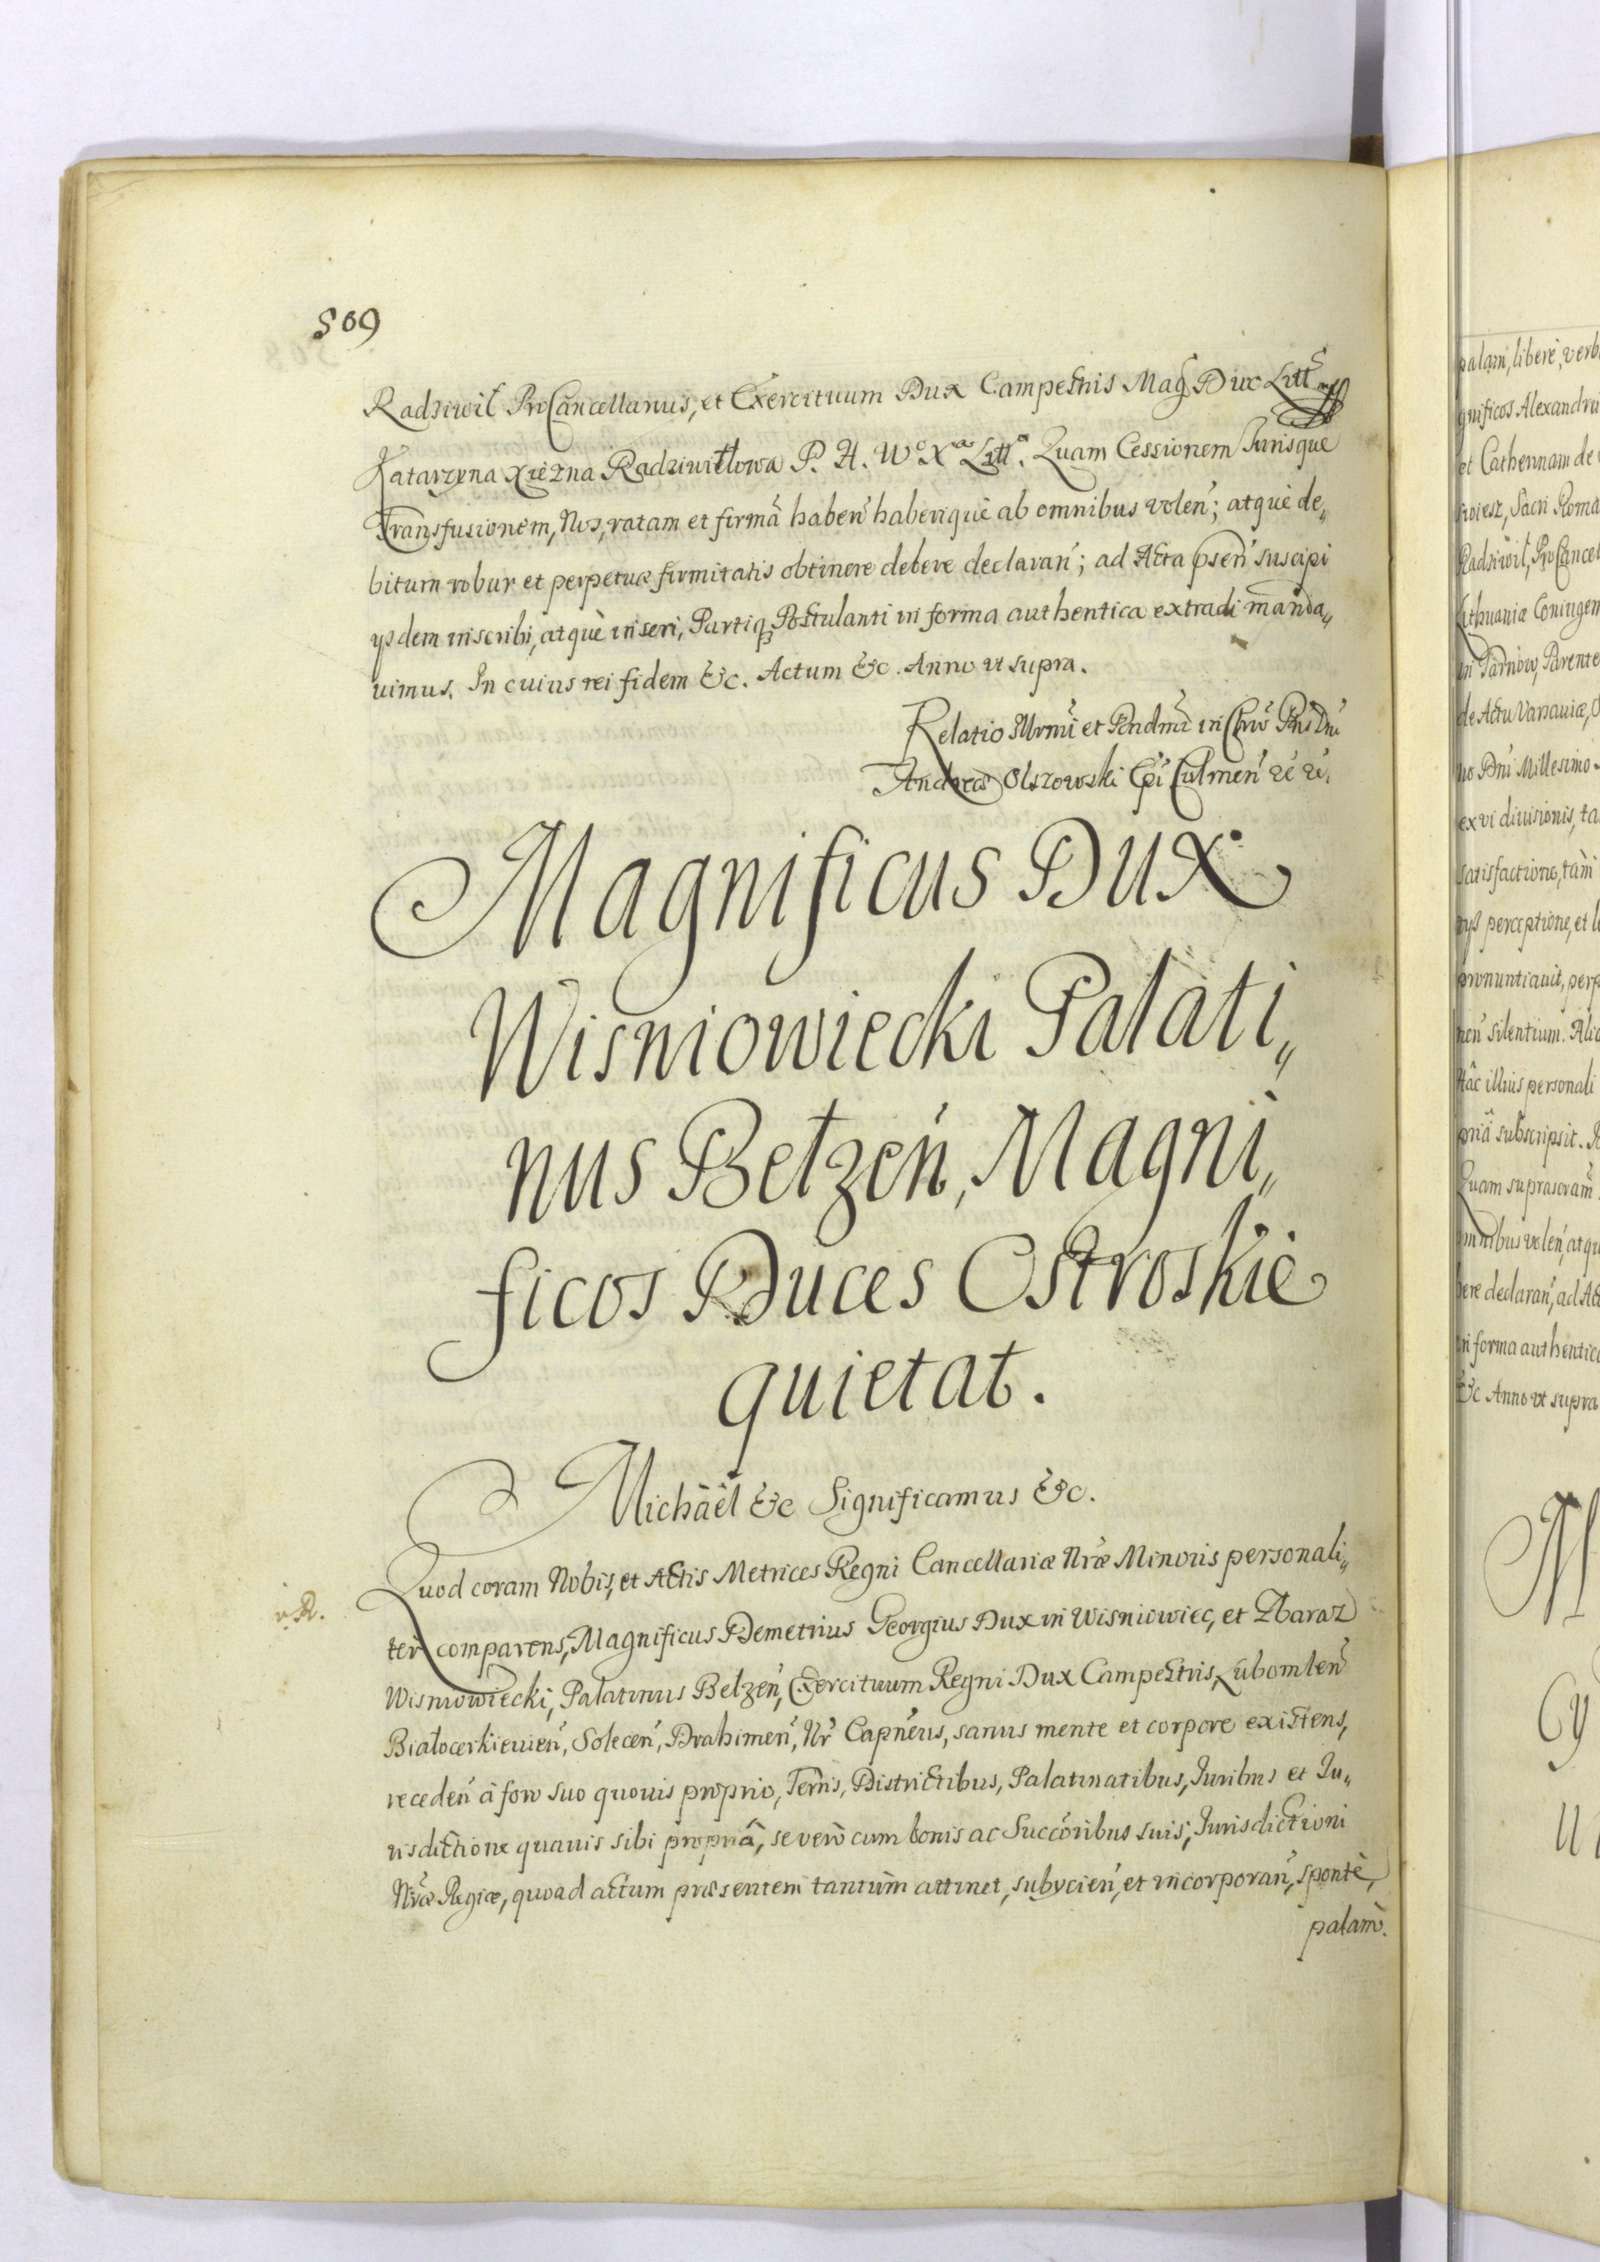 509
Radziwił ProCancellarius, et Exercituum Dux Campestris Mag. Duc Litt
Katarzyna Xiężna Radziwiłłowa P. H. W° X Litt. Quam Cessionem Jurisque
Transfusionem, Nos, ratam et firmã haberi haberiquè ab omnibus volen'; atquè de„
bitum robur et perpetuæ firmitatis obtinere debere declaran'; ad Acta psen' suscipi
ysdem inscribi, atquè inseri, Partiq Postulanti in forma authentica extradi manda„
uimus. In cuius rei fidem &c. Actum &c. Anno ut supra.
Relatio Illrmi et Rndmi in Chro Pris Dni
Andreæ Olszowski Epi Culmen'
Magnificus Dux
Wisniowiecki Palati„
nus Betzen', Magni„
ficos Duces Ostroskie
quietat.
Michaël &c Significamus &c.
Quod coram Nobis, et Actis Metrices Regni Cancellariæ Nræ Minoris personali„
ter comparens, Magnificus Demetrius Georgius Dux in Wisniowiec, et Zbaraz
Wisniowiecki, Palatinus Belzen', Exercituum Regni Dux Campestris, Lubomlen'
Białocerkieuien', Solecen', Drahimen', Nr Capneus, sanus mente et corpore existens,
receden' à foro suo quouis proprio, Terris, Districtibus, Palatinatibus, Juribus et Ju„
risdictione quauis sibi propriâ, se verò cum bonis ac Succoribus suis, Jurisdictioni
Nræ Regiæ, quoad actum præsentem tantùm attinet, subycien', et incorporan', spontè,
palam.
palam, liberè, verb
gnificos Alexandru
et Catherinam de
Sacri Roma
Radziwił, ProCancel
Lithuaniæ Coniugem
in Tarnow, Parente
de Actu Varsauiæ,
no Dni Millesimo
ex vi diuisionis, ta
satisfactione, tàm
perceptione, et l
pronuntiauit, perp
silentium. Ali
Hâc illius personali
priâ subscripsit.
Quam suprascram
omnibus volen', atqu
bere declaran', ad Act
in forma authentica
&c Anno ut supra